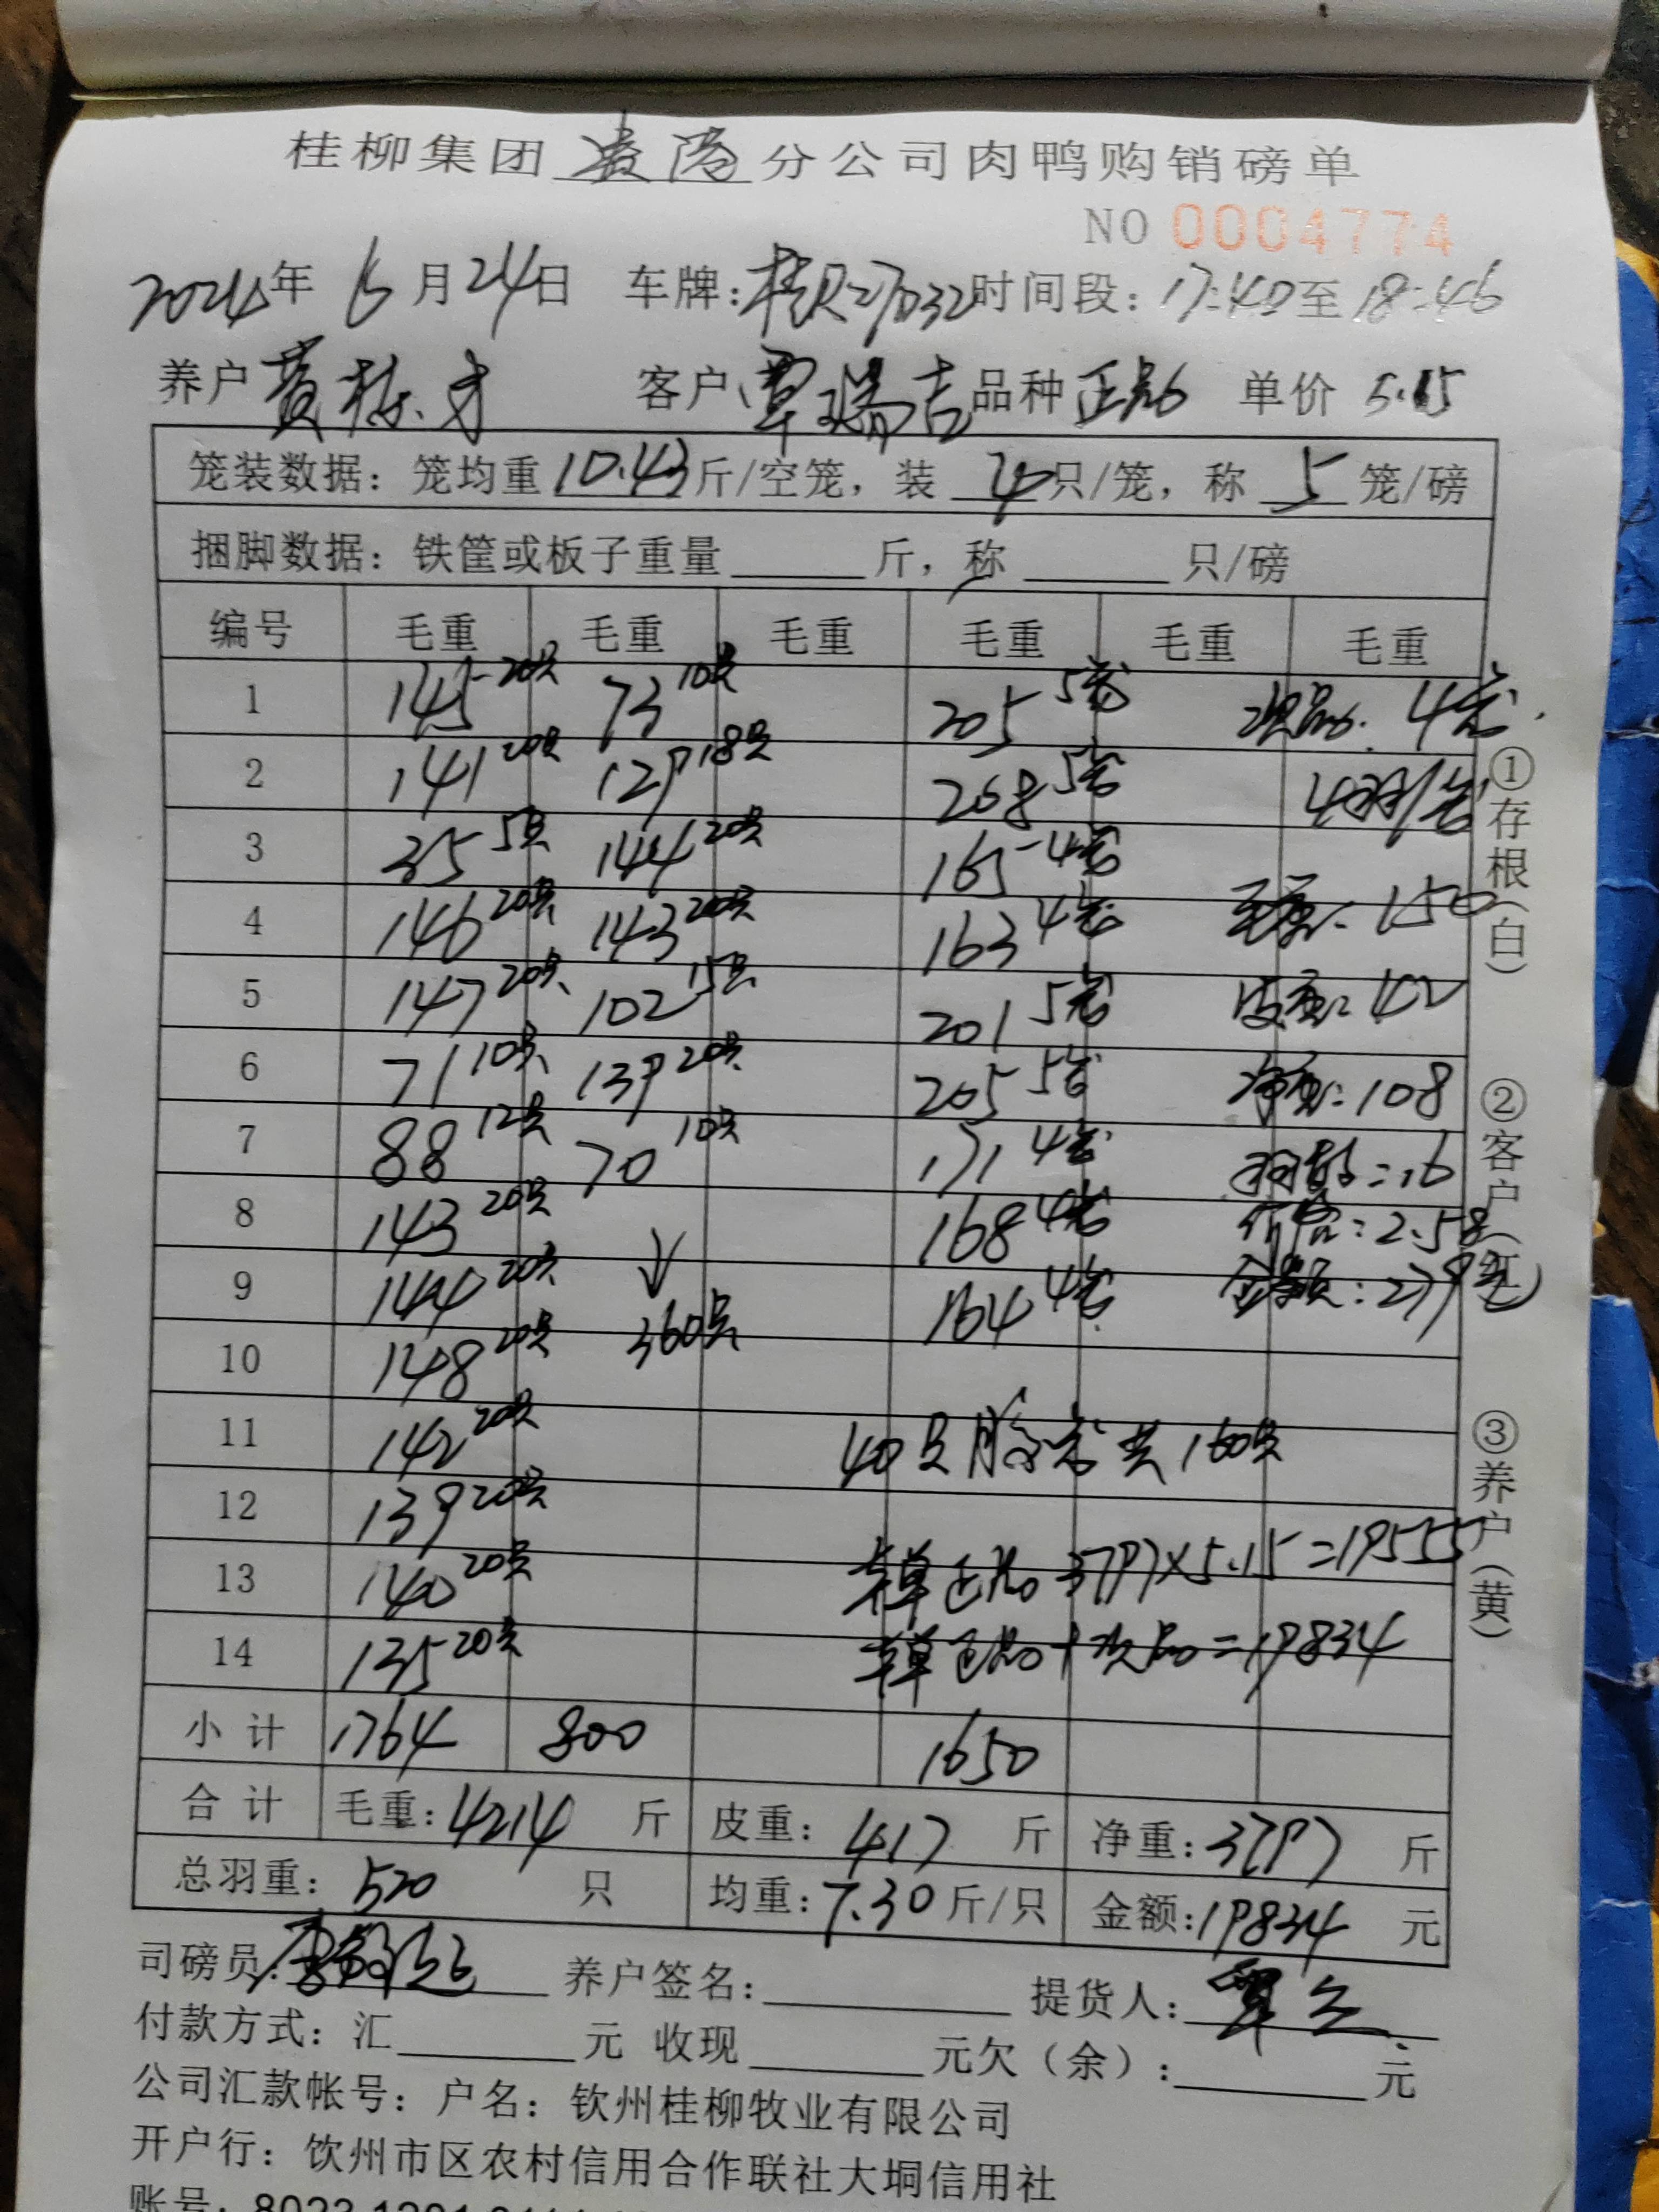 桂柳集团贵港分公司肉鸭购销磅单
NO 0004774
2024年 6月24日 车牌: 时间段：17:40至18:46
养户 黄 才 客户 覃瑞吉 品种 正品 单价 5.15
笼装数据：笼均重10.43斤/空笼，装 4只/笼，称 5 笼/磅
捆脚数据：铁筐或板子重量 斤，称 只/磅
编号 毛重 毛重 毛重 毛重 毛重 毛重
1 145 20只 73 10只 205 5笼 次品: 4笼
2 141 20只 129 18只 208 5笼 4羽/笼
3 35 5只 144 20只 165 4笼
4 146 20只 143 20只 163 4笼 毛重: 150
5 147 20只 102 15只 201 5笼 皮重: 42
6 71 10只 139 20只 205 5笼 净重: 108
7 88 12只 70 10只 171 4笼 羽数: 16
8 143 20只 168 4笼 价格: 2.58
9 144 20只 360只 164 4笼 金额: 279元
10 148 20只
11 142 20只 40只胶笼共160只
12 139 20只
13 140 20只 本单正品 3797×5.15=19555
14 135 20只 本单正品+次品=19834
小 计 1764 800 1650
合 计 毛重: 4214 斤 皮重: 417 斤 净重: 3797 斤
总羽重: 520 只 均重: 7.30 斤/只 金额: 19834 元
司磅员: 养户签名: 提货人: 覃
付款方式：汇 元 收现 元欠（余）: 元
公司汇款帐号：户名：钦州桂柳牧业有限公司
开户行：饮州市区农村信用合作联社大垌信用社
账号: 8023 1201
①存根（白） ②客户（红） ③养户（黄）